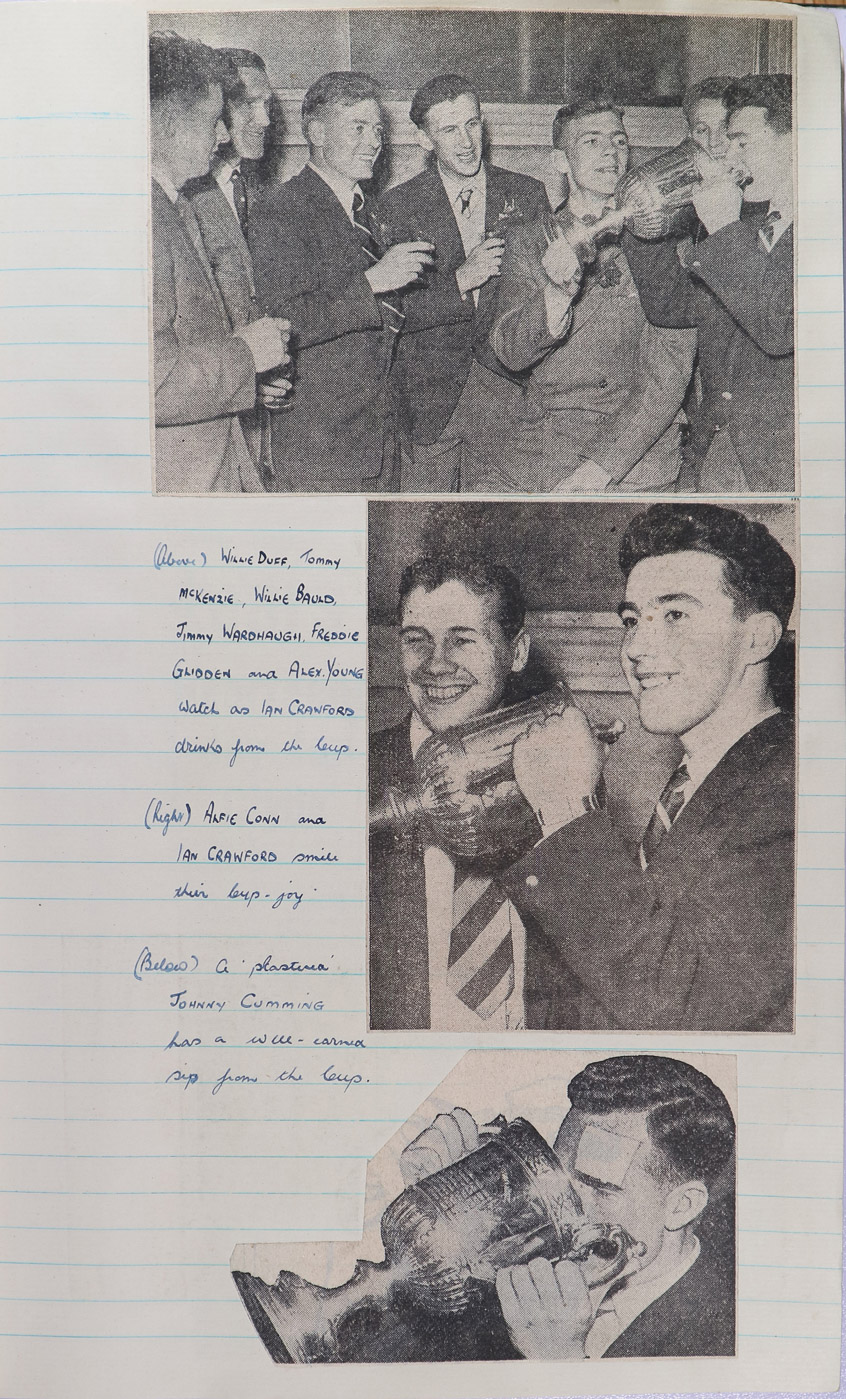 (Above) WILLIE DUFF, TOMMY
MCKENZIE, WILLIE BAULD,
JIMMY WARDHAUGH, FREDDIE
GLIDDEN and ALEX. YOUNG
watch as IAN CRAWFORD
drinks from the Cup.
(Right) ALFIE CONN and
IAN CRAWFORD smile
their Cup-joy.
(Below) A 'plastered'
JOHNNY CUMMING
has a well-earned
sip from the Cup.